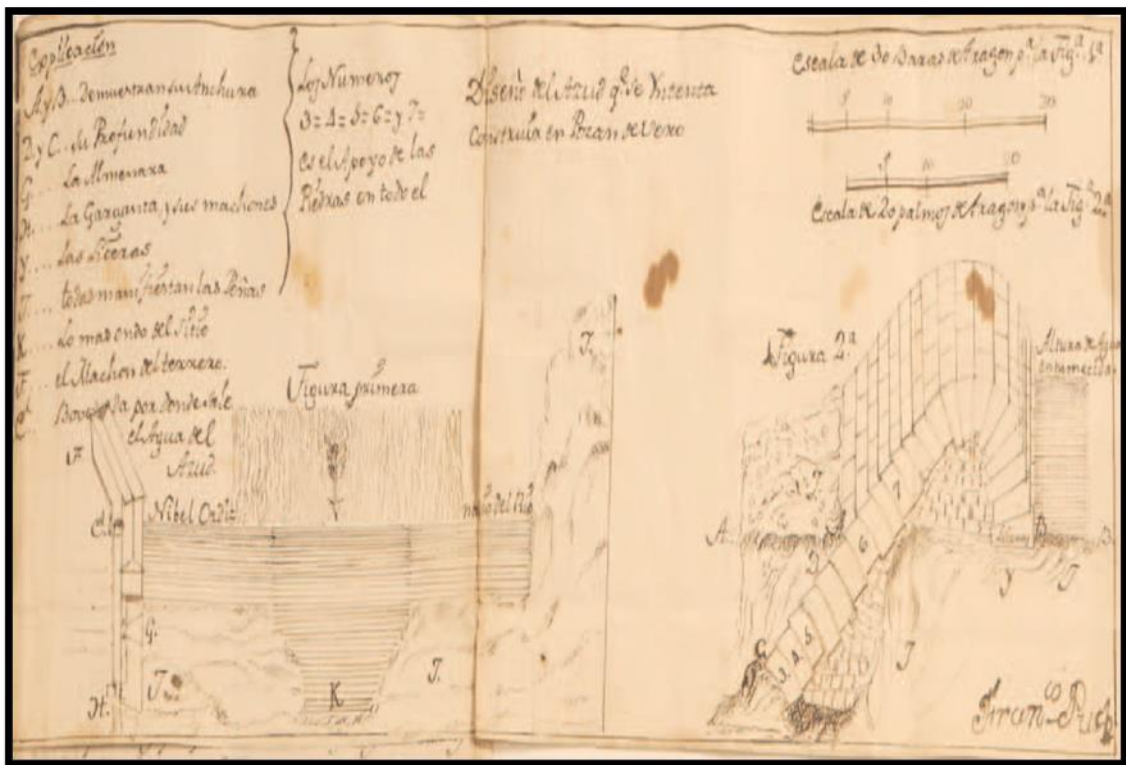 Explicacion
A. y B... Demuestran su Anchura
D. y C... su Profundidad
G.... La Almenara
H.... La Garganta, y sus machones
Y.... Las
J.... todas manifiestan las Peñas
K.... Lo mas ondo del Sitio
F.... el Machon del terrero.
d.... Boveda por donde sale
el Agua del
Azud.
Los Numeros
3=4=5=6=y 7=
es el Apoyo de las
Piedras en todo el
Diseño del Azud q.e se Yntenta
Construir en Pozan de Vero
Escala de 30 Baras de Aragon p.a la Fig.a 1.a
5 10 20 30
5 10 20
Escala de 20 palmos de Aragon p.a la Fig.a 2.a
Figura primera
F.
d.
Nibel Ordi
nario del Rio
G.
H.
J.
K
J.
J.
Figura 2.a
Altura de Agua
A
B
C
3. 4. 5.
6
7
Y
J
J
Fran.co Puch